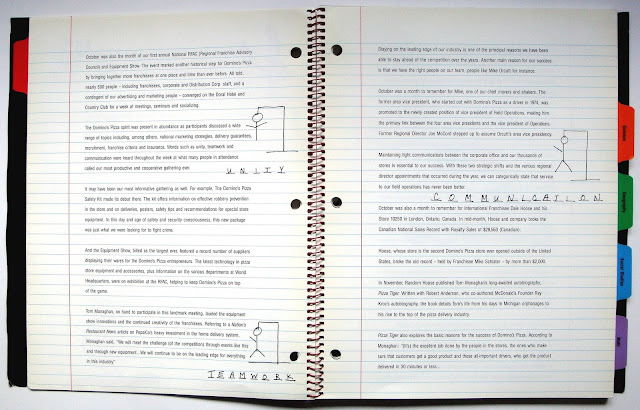 October was also the month of our first annual National RFAC (Regional Franchise Advisory
Council) and Equipment Show. The event marked another historical step for Domino's Pizza
by bringing together more franchisees at one place and time than ever before. All told,
nearly 600 people - including franchisees, corporate and Distribution Corp. staff, and a
contingent of our advertising and marketing people - converged on the Doral Hotel and
Country Club for a week of meetings, seminars and socializing.
The Domino's Pizza spirit was present in abundance as participants discussed a wide
range of topics including, among others, national marketing strategies, delivery guarantees,
recruitment, franchise criteria and insurance. Words such as unity, teamwork and
communication were heard throughout the week at what many people in attendance
called our most productive and cooperative gathering ever.
UNITY
It may have been our most informative gathering as well. For example, The Domino's Pizza
Safety Kit made its debut there. The kit offers information on effective robbery prevention
in the store and on deliveries, posters, safety tips and recommendations for special store
equipment. In this day and age of safety and security consciousness, this new package
was just what we were looking for to fight crime.
And the Equipment Show, billed as the largest ever, featured a record number of suppliers
displaying their wares for the Domino's Pizza entrepreneurs. The latest technology in pizza
store equipment and accessories, plus information on the various departments at World
Headquarters, were on exhibition at the RFAC, helping to keep Domino's Pizza on top
of the game.
Tom Monaghan, on hand to participate in this landmark meeting, lauded the equipment
show innovations and the continued creativity of the franchisees. Referring to a Nation's
Restaurant News article on PepsiCo's heavy investment in the home delivery system,
Monaghan said, "We will meet the challenge (of the competition) through events like this
and through new equipment. We will continue to be on the leading edge for everything
in this industry."
TEAMWORK
Staying on the leading edge of our industry is one of the principal reasons we have been
able to stay ahead of the competition over the years. Another main reason for our success
is that we have the right people on our team, people like Mike Orcutt for instance.
October was a month to remember for Mike, one of our chief movers and shakers. The
former area vice president, who started out with Domino's Pizza as a driver in 1974, was
promoted to the newly created position of vice president of Field Operations, making him
the primary link between the four area vice presidents and the vice president of Operations.
Former Regional Director Joe McCord stepped up to assume Orcutt's area vice presidency.
Maintaining tight communications between the corporate office and our thousands of
stores is essential to our success. With these two strategic shifts and the various regional
director appointments that occurred during the year, we can categorically state that service
to our field operations has never been better.
COMMUNICATION
October was also a month to remember for International Franchisee Dale House and his
Store 10250 in London, Ontario, Canada. In mid-month, House and company broke the
Canadian National Sales Record with Royalty Sales of $29,560 (Canadian).
House, whose store is the second Domino's Pizza store ever opened outside of the United
States, broke the old record - held by Franchisee Mike Schlater - by more than $2,000.
In November, Random House published Tom Monaghan's long-awaited autobiography,
Pizza Tiger. Written with Robert Anderson, who co-authored McDonald's Founder Ray
Kroc's autobiography, the book details Tom's life from his days in Michigan orphanages to
his rise to the top of the pizza delivery industry.
Pizza Tiger also explores the basic reasons for the success of Domino's Pizza. According to
Monaghan: "(It's) the excellent job done by the people in the stores, the ones who make
sure that customers get a good product and those all-important drivers, who get the product
delivered in 30 minutes or less...
Science
Geography
Social Studies
Math